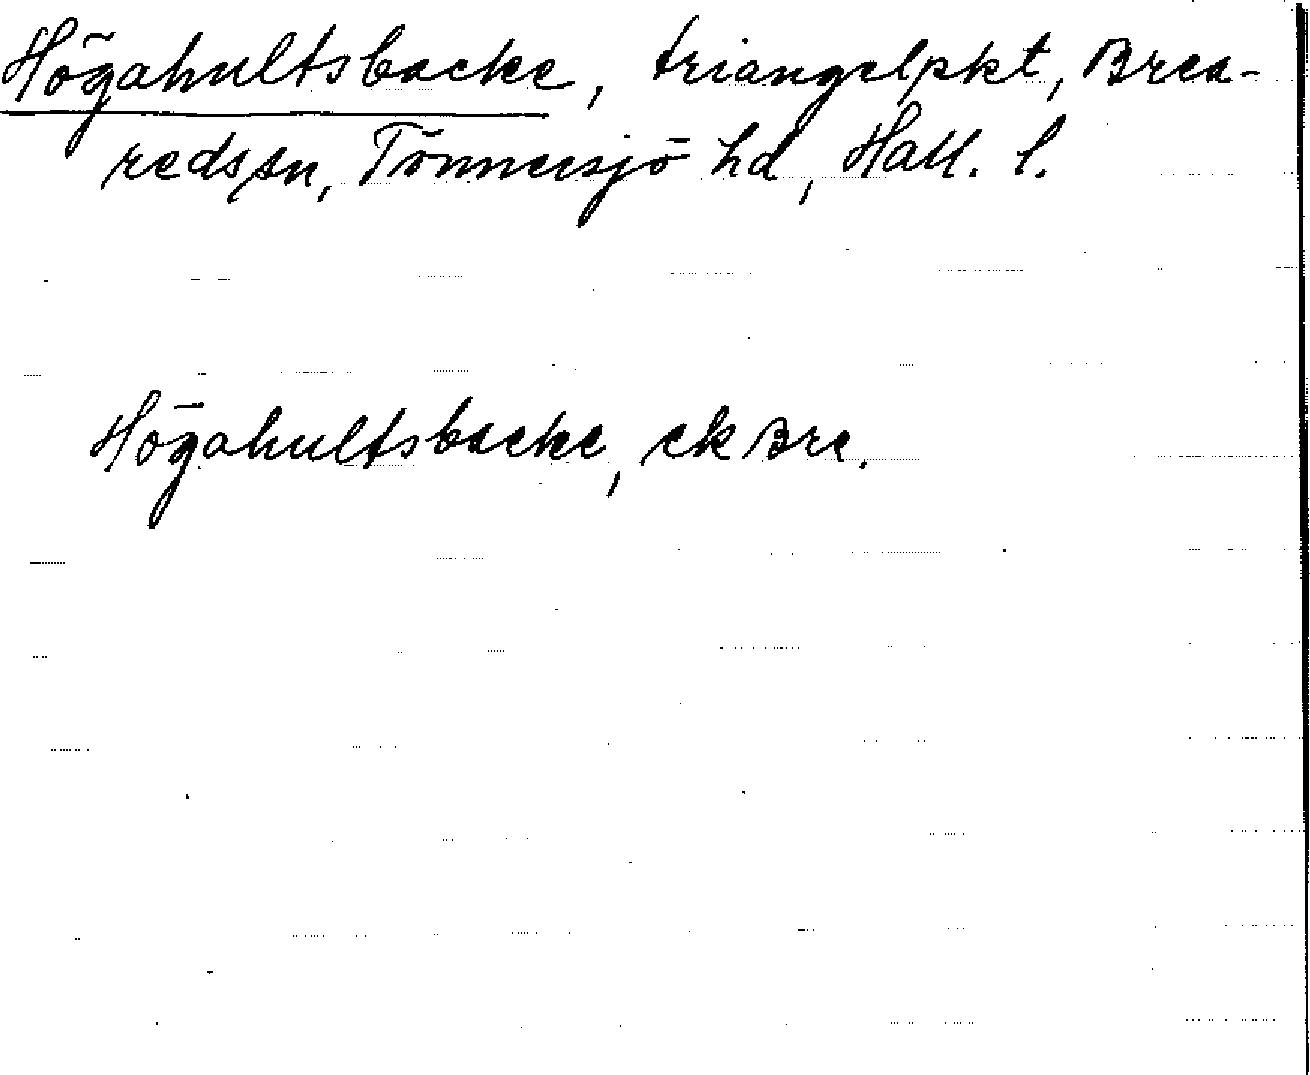 Högahultsbacke, triangelpkt, Brea-
reds sn, Tönnersjö hd, Hall. l.
Högahultsbacke, ek Bre.